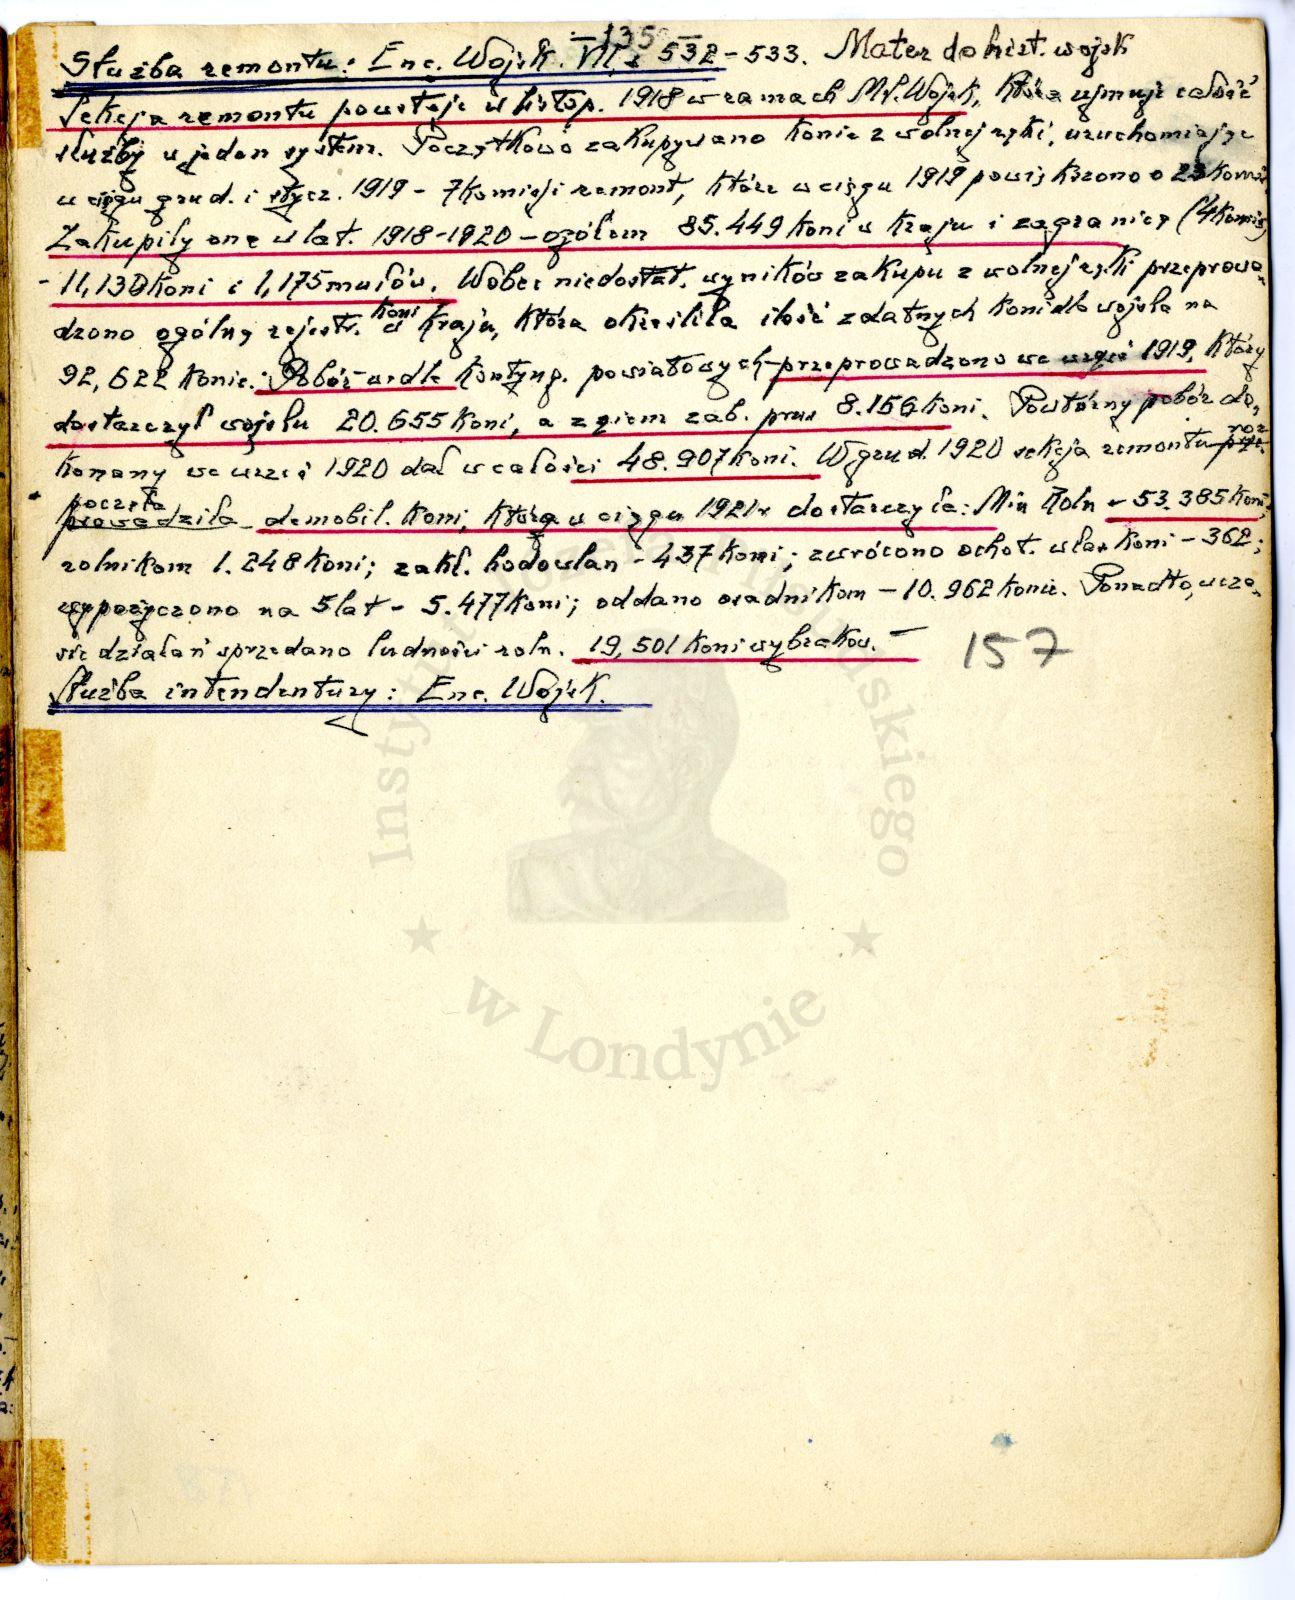 - 135 -
Służba remontu: Enc. Wojsk. VII, s 532-533. Mater do hist. wojsk
Sekcja remontu powstaje w listop. 1918 w ramach M.S.Wojsk, która ujmuje całość
służby w jeden system. Początkowo zakupywano konie z wolnej ręki, uruchomiając
w ciągu grud. i stycz. 1919 - 7 komisji remont, które w ciągu 1919 powiększono o 23 komis.
Zakupiły one w lat. 1918-1920 - ogółem 85.449 koni w kraju i zagranicą (4 komis)
- 11,130 koni i 1,175 mułów. Wobec niedostat. wyników zakupu z wolnej ręki przeprowa-
dzono ogólną rejestr. koni w kraju, która określiła ilość zdatnych koni dla wojska na
92,622 konie. Pobór wedle kontyng. powiatowych przeprowadzono we wrześ 1919, który
dostarczył wojsku 20.655 koni, a z ziem zab. prus 8.156 koni. Powtórny pobór do-
konany we wrześ 1920 dał w całości 48.907 koni. W grud. 1920 sekcja remontu roz prze-
poczęła
prowadziła demobil. koni, którą w ciągu 1921r dostarczyła: Min Roln - 53.385 koni;
rolnikom 1.248 koni; zakł. hodowlan - 437 koni; zwrócono ochot. właś koni - 362;
wypożyczono na 5 lat - 5.477 koni; oddano osadnikom - 10.962 konie. Ponadto, w cza-
sie działań sprzedano ludności roln. 19,501 koni wybrakow. -
157
Służba intendentury: Enc. Wojsk.
Instytut Józefa Piłsudskiego
★ w Londynie ★